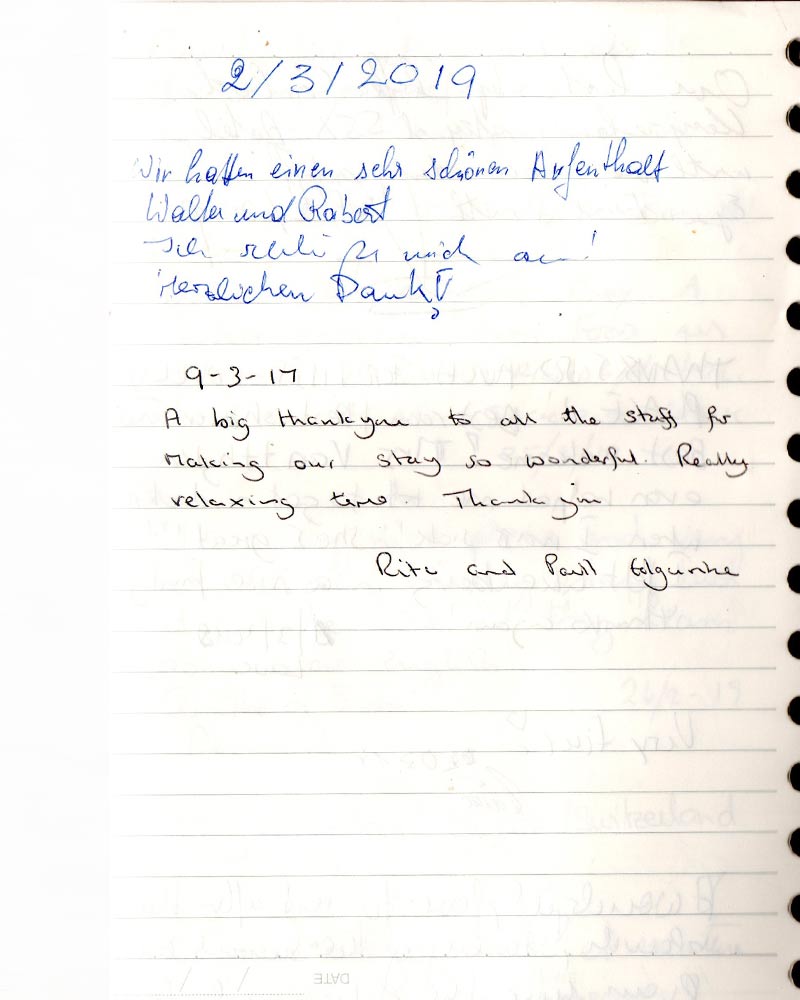 2/3/2019
Wir hatten einen sehr schönen Aufenthalt
Walter und Robert
Ich schließe mich an!
Herzlichen Dank!
9-3-17
A big thankyou to all the staff for
making our stay so wonderful. Really
relaxing time. Thank you
Rita and Paull
DATE